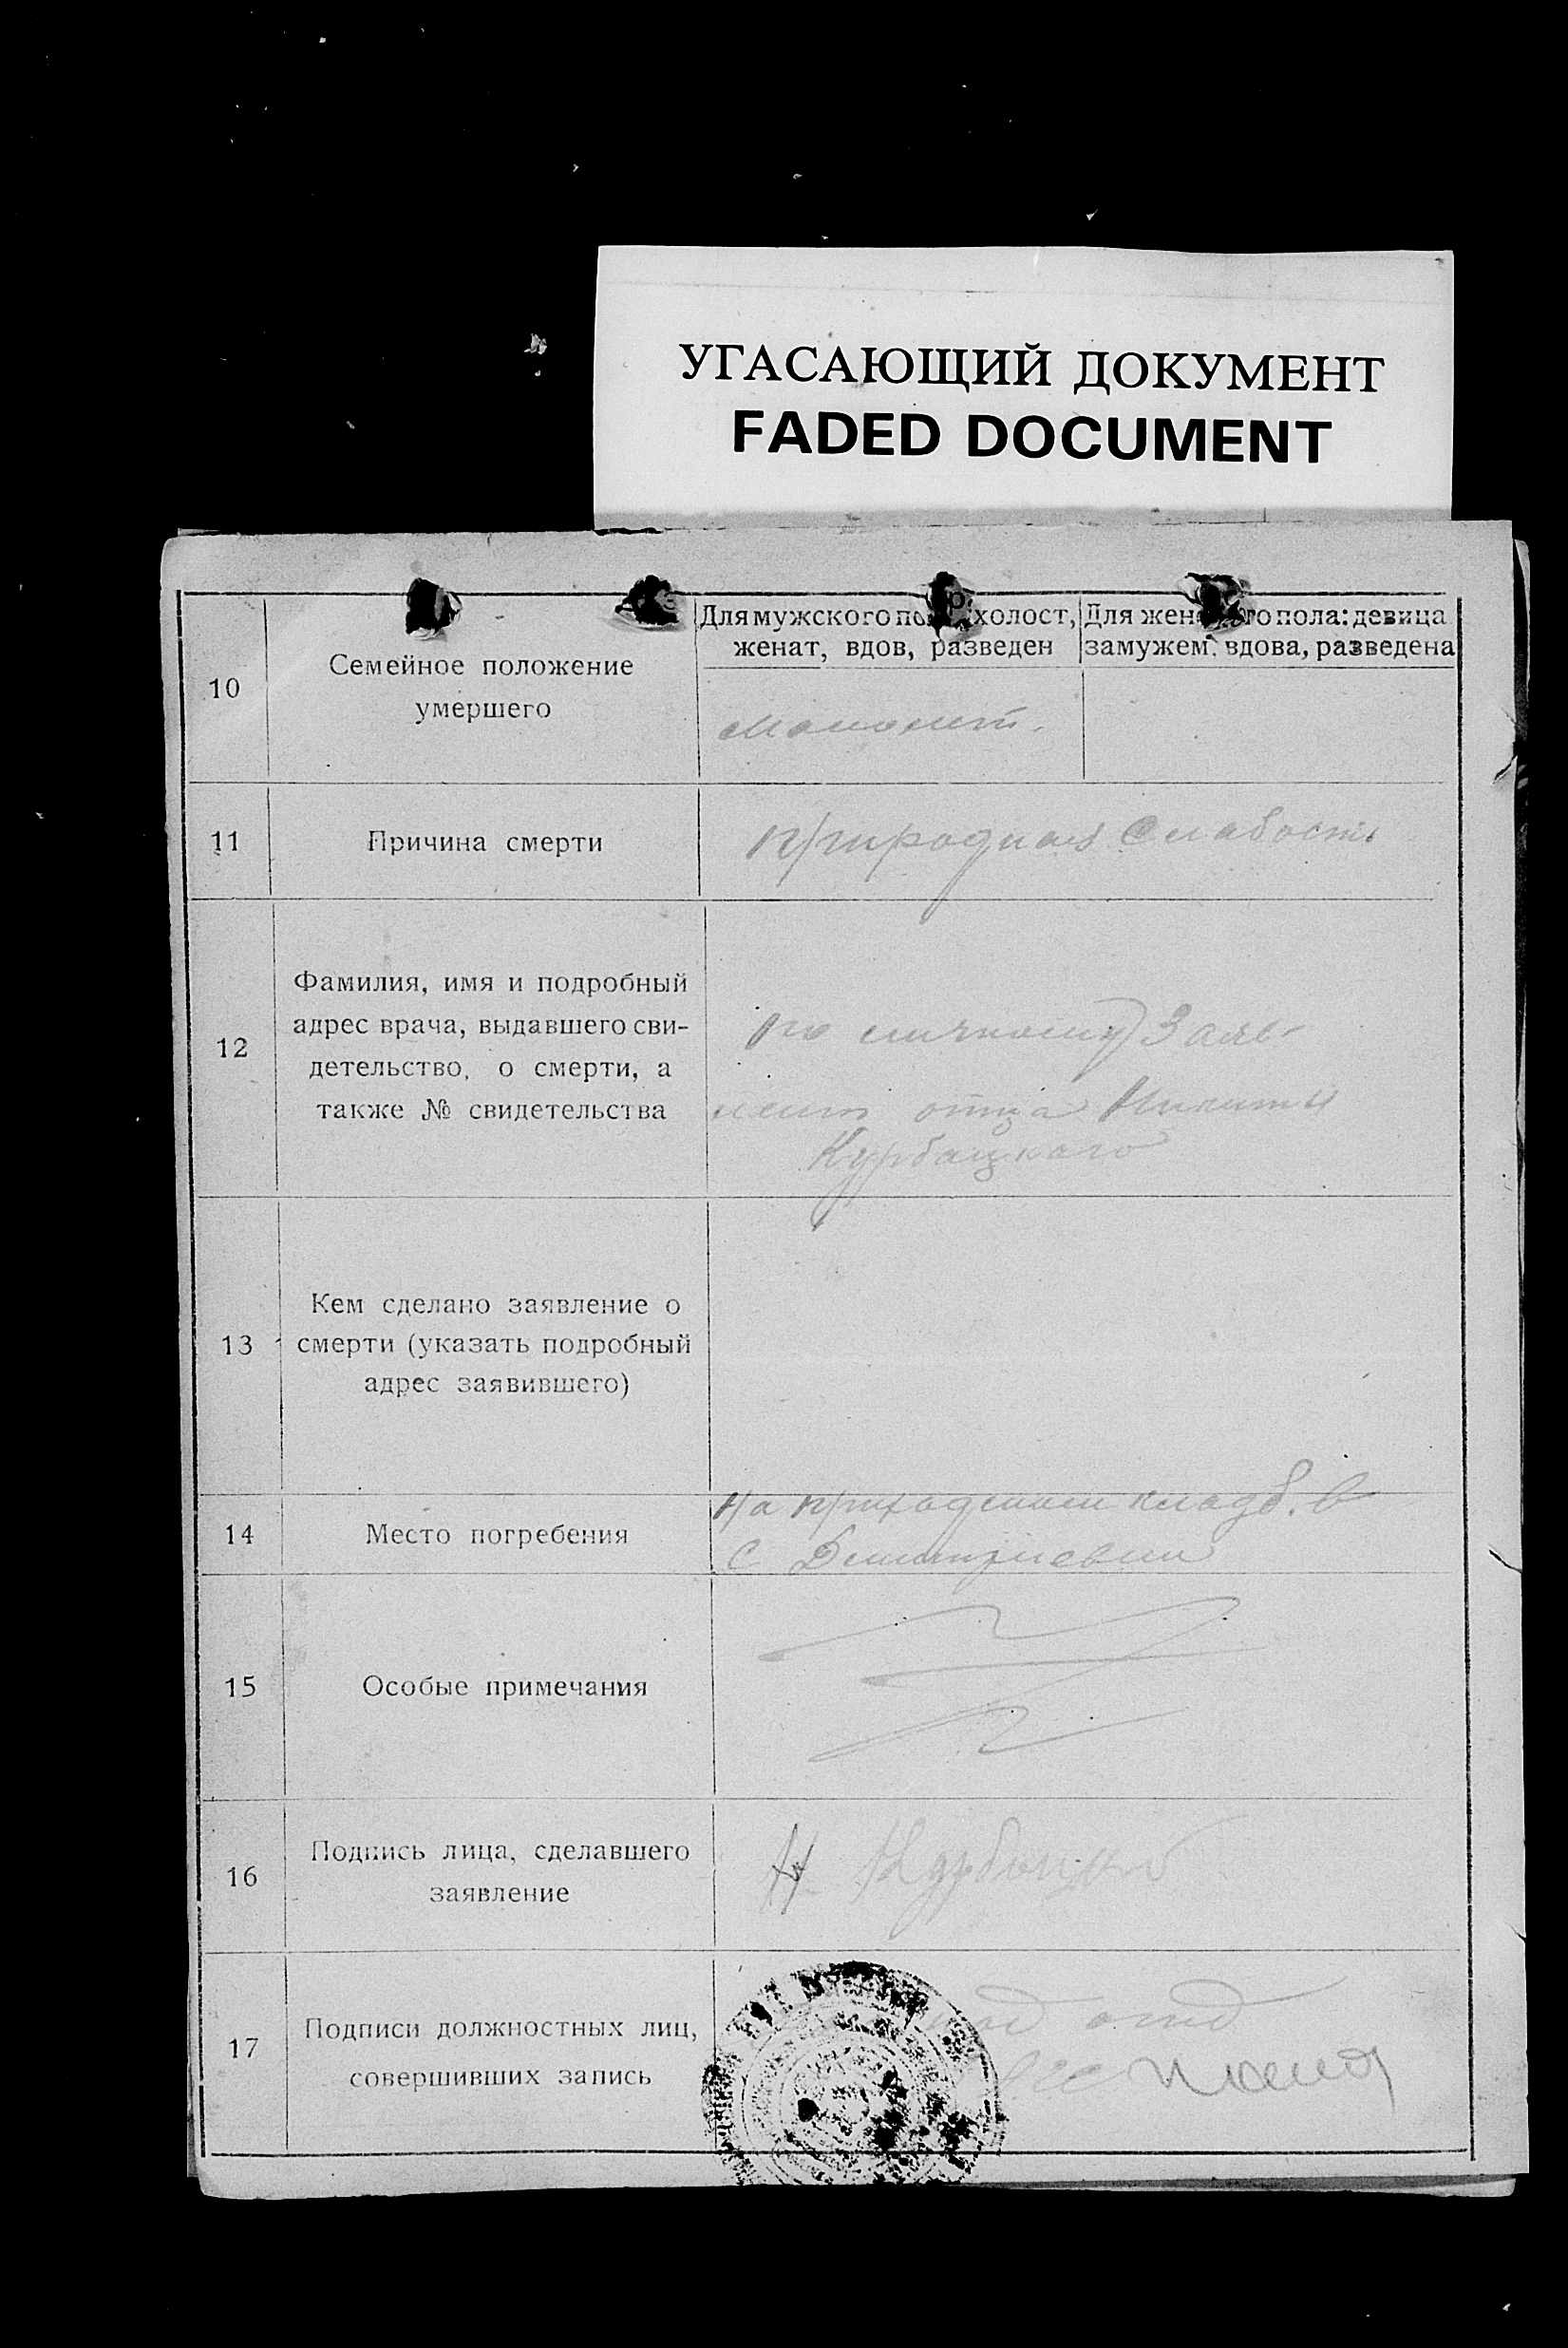 УГАСАЮЩИЙ ДОКУМЕНТ
FADED DOCUMENT
10
Семейное положение
умершего
Для мужского холост,
женат, вдов, разведен
Для пола: девица
замужем, вдова, разведена
11
Причина смерти
природная слабость
12
Фамилия, имя и подробный
адрес врача, выдавшего сви-
детельство, о смерти, а
также № свидетельства
по личному Заяв-
отца Никиты
Курбацкого
13
Кем сделано заявление о
смерти (указать подробный
адрес заявившего)
14
Место погребения
На приходском кладб. в
с
15
Особые примечания
16
Подпись лица, сделавшего
заявление
Н
17
Подписи должностных лиц,
совершивших запись